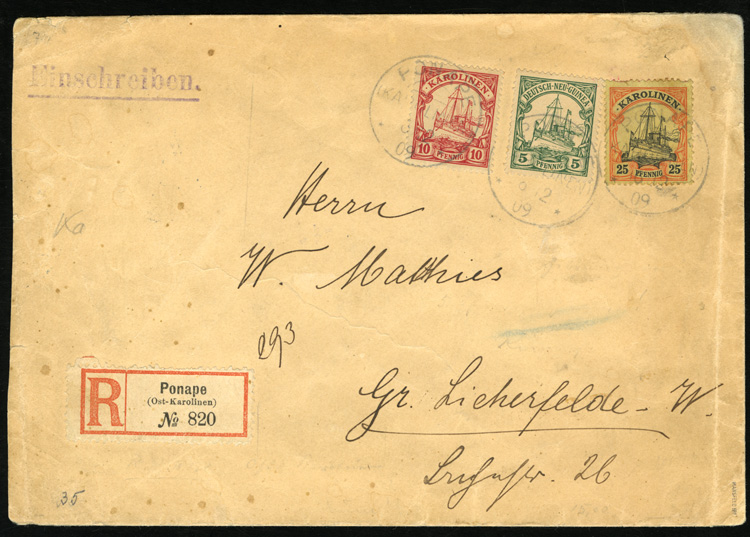 Einschreiben.
KAROLINEN
10 PFENNIG 10
DEUTSCH-NEU-GUINEA
5 PFENNIG 5
KAROLINEN
25 PFENNIG 25
09
9 2
09
09
Herrn
W. Matthies
293
Gr. Licherfelde - W.
26
R
Ponape
(Ost-Karolinen)
№ 820
35